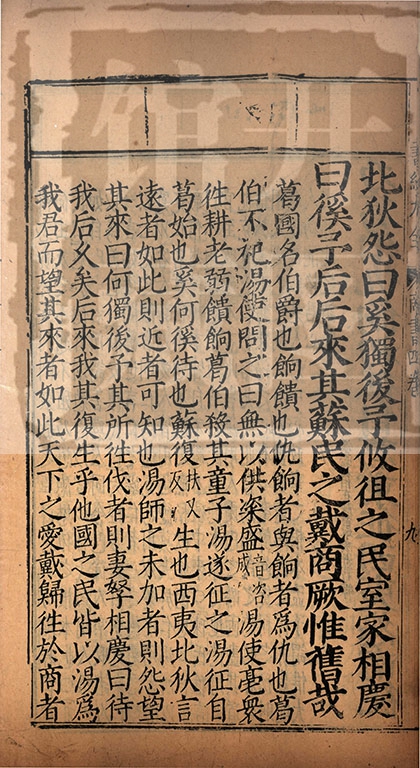 北狄怨曰奚獨後予攸徂之民室家相慶
曰徯予后后來其蘇民之戴商厥惟舊哉
葛國名伯爵也餉饋也仇餉者與餉者爲仇也葛
伯不祀湯使問之曰無以供粢盛音咨成湯使亳衆
徃耕老弱饋餉葛伯殺其童子湯遂征之湯征自
葛始也奚何徯待也蘇復扶又反生也西夷北狄言
遠者如此則近者可知也湯師之未加者則怨望
其來曰何獨後予其所徃伐者則妻孥相慶曰待
我后乆矣后來我其復生乎他國之民皆以湯爲
我君而望其來者如此天下之愛戴歸徃於商者
九